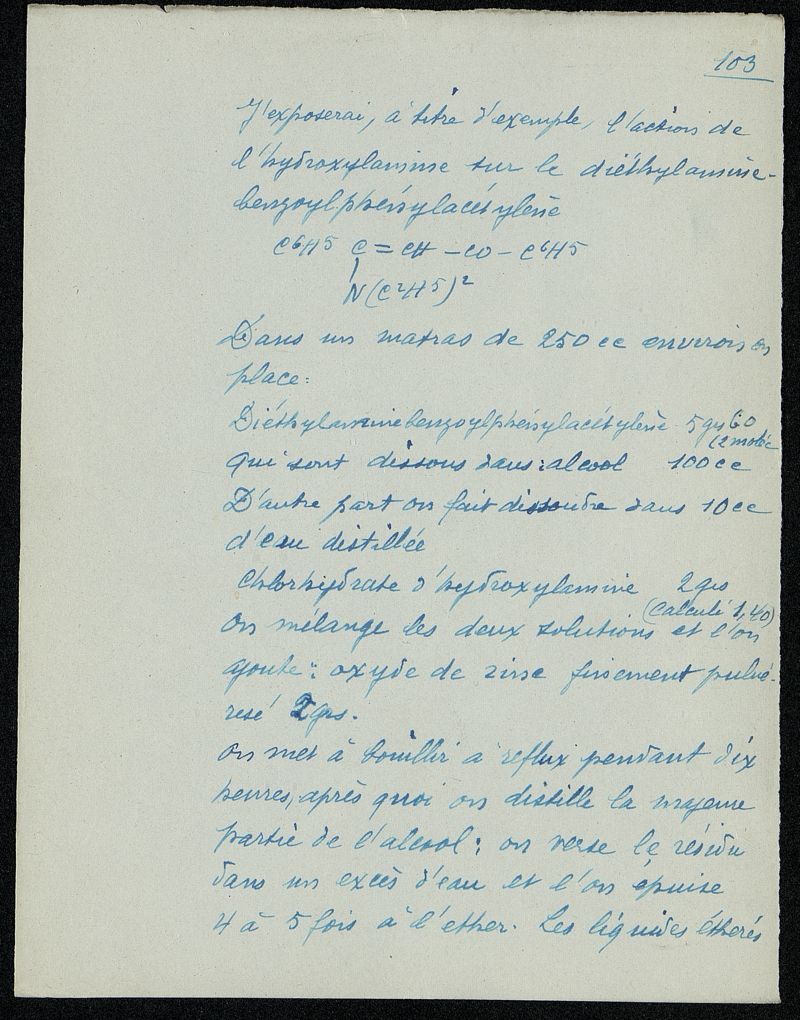 103
J'exposerai, à titre d'exemple, l'action de
l'hydroxylamine sur le diéthylamine-
benzoylphénylacétylène
C6H5 C = CH - CO - C6H5
|
N(C2H5)2
Dans un matras de 250cc environ on
place:
Diéthylaminebenzoylphénylacétylène 5grs60
(2 molec
qui sont dissous dans: alcool 100cc
D'autre part on fait dissoudre dans 10cc
d'eau distillée
Chlorhydrate d'hydroxylamine 2grs
(calculé 1,40)
On mélange les deux solutions et l'on
ajoute: oxyde de zinc finement pulvé-
risé 2grs.
On met à bouillir à reflux pendant dix
heures, après quoi on distille la majeure
partie de l'alcool; on verse le résidu
dans un excès d'eau et l'on épuise
4 à 5 fois à l'ether. Les liquides éthérés